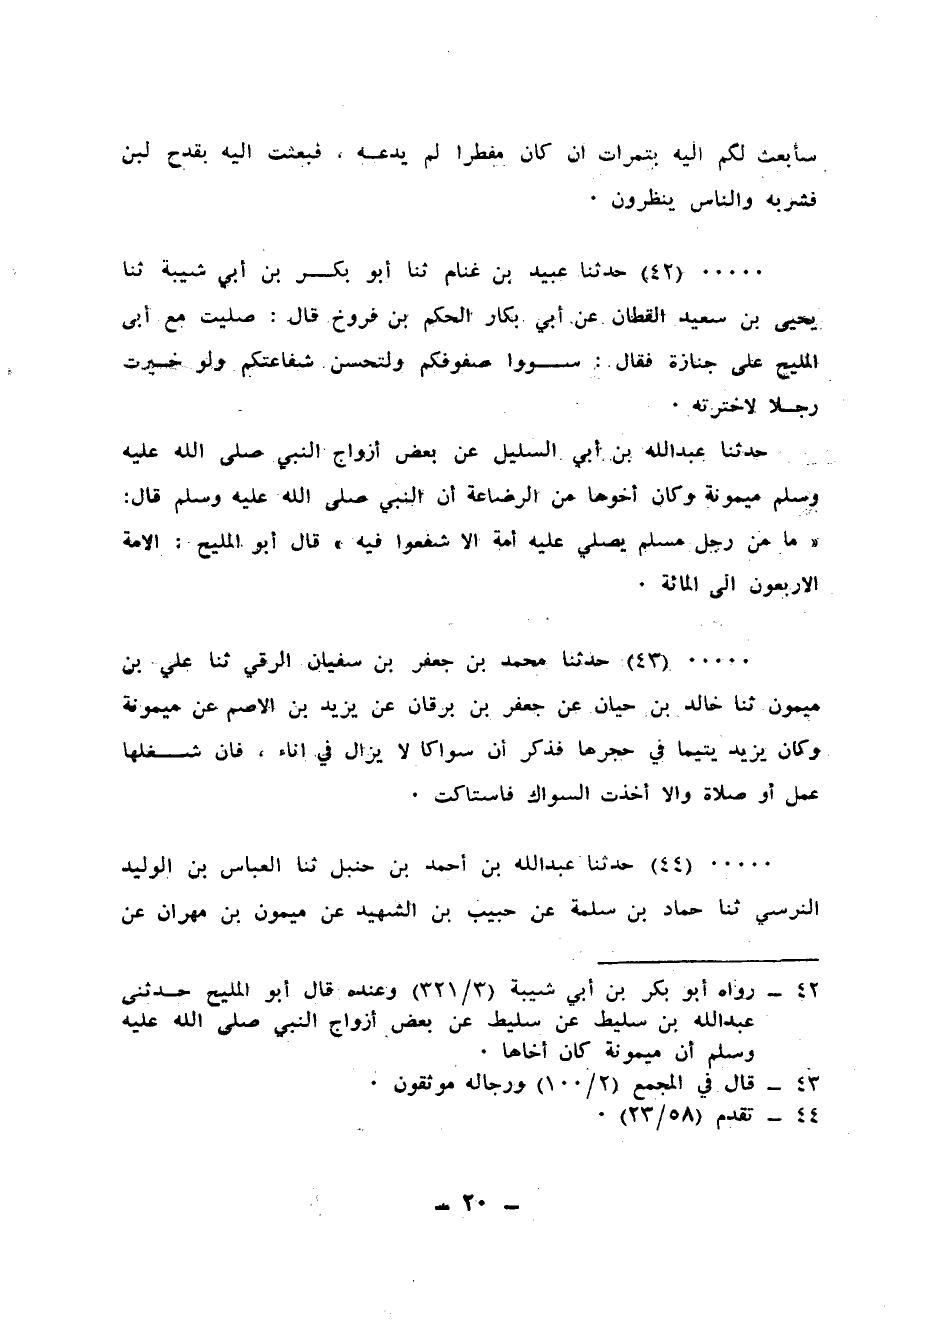 سأبعث لكم اليه بتمرات ان كان مفطرا لم يدعــه ، فبعثت اليه بقدح لبن
فشربه والناس ينظرون ٠
٠٠٠٠٠ (٤٢) حدثنا عبيد بن غنام ثنا أبو بكـــر بن أبي شيبة ثنا
يحيى بن سعيد القطان عن أبي بكار الحكم بن فروخ قال : صليت مع أبى
المليح على جنازة فقال : ســـووا صفوفكم ولتحسن شفاعتكم ولو خــيرت
رجــلا لاخترته ٠
حدثنا عبدالله بن أبي السليل عن بعض أزواج النبي صلى الله عليه
وسلم ميمونة وكان أخوها من الرضاعة أن النبي صلى الله عليه وسلم قال:
« ما من رجل مسلم يصلي عليه أمة الا شفعوا فيه » قال أبو المليح : الامة
الاربعون الى المائة ٠
٠٠٠٠٠ (٤٣) حدثنا محمد بن جعفر بن سفيان الرقي ثنا علي بن
ميمون ثنا خالد بن حيان عن جعفر بن برقان عن يزيد بن الاصم عن ميمونة
وكان يزيد يتيما في حجرها فذكر أن سواكا لا يزال في اناء ، فان شـــغلها
عمل أو صلاة والا أخذت السواك فاستاكت ٠
٠٠٠٠٠ (٤٤) حدثنا عبدالله بن أحمد بن حنبل ثنا العباس بن الوليد
النرسي ثنا حماد بن سلمة عن حبيب بن الشهيد عن ميمون بن مهران عن
٤٢ ــ رواه أبو بكر بن أبي شيبة (٣٢١/٣) وعنده قال أبو المليح حــدثنى
عبدالله بن سليط عن سليط عن بعض أزواج النبي صلى الله عليه
وسلم أن ميمونة كان أخاها ٠
٤٣ ــ قال في المجمع (١٠٠/٢) ورجاله موثقون ٠
٤٤ ــ تقدم (٢٣/٥٨) ٠
ــ ٢٠ ــ